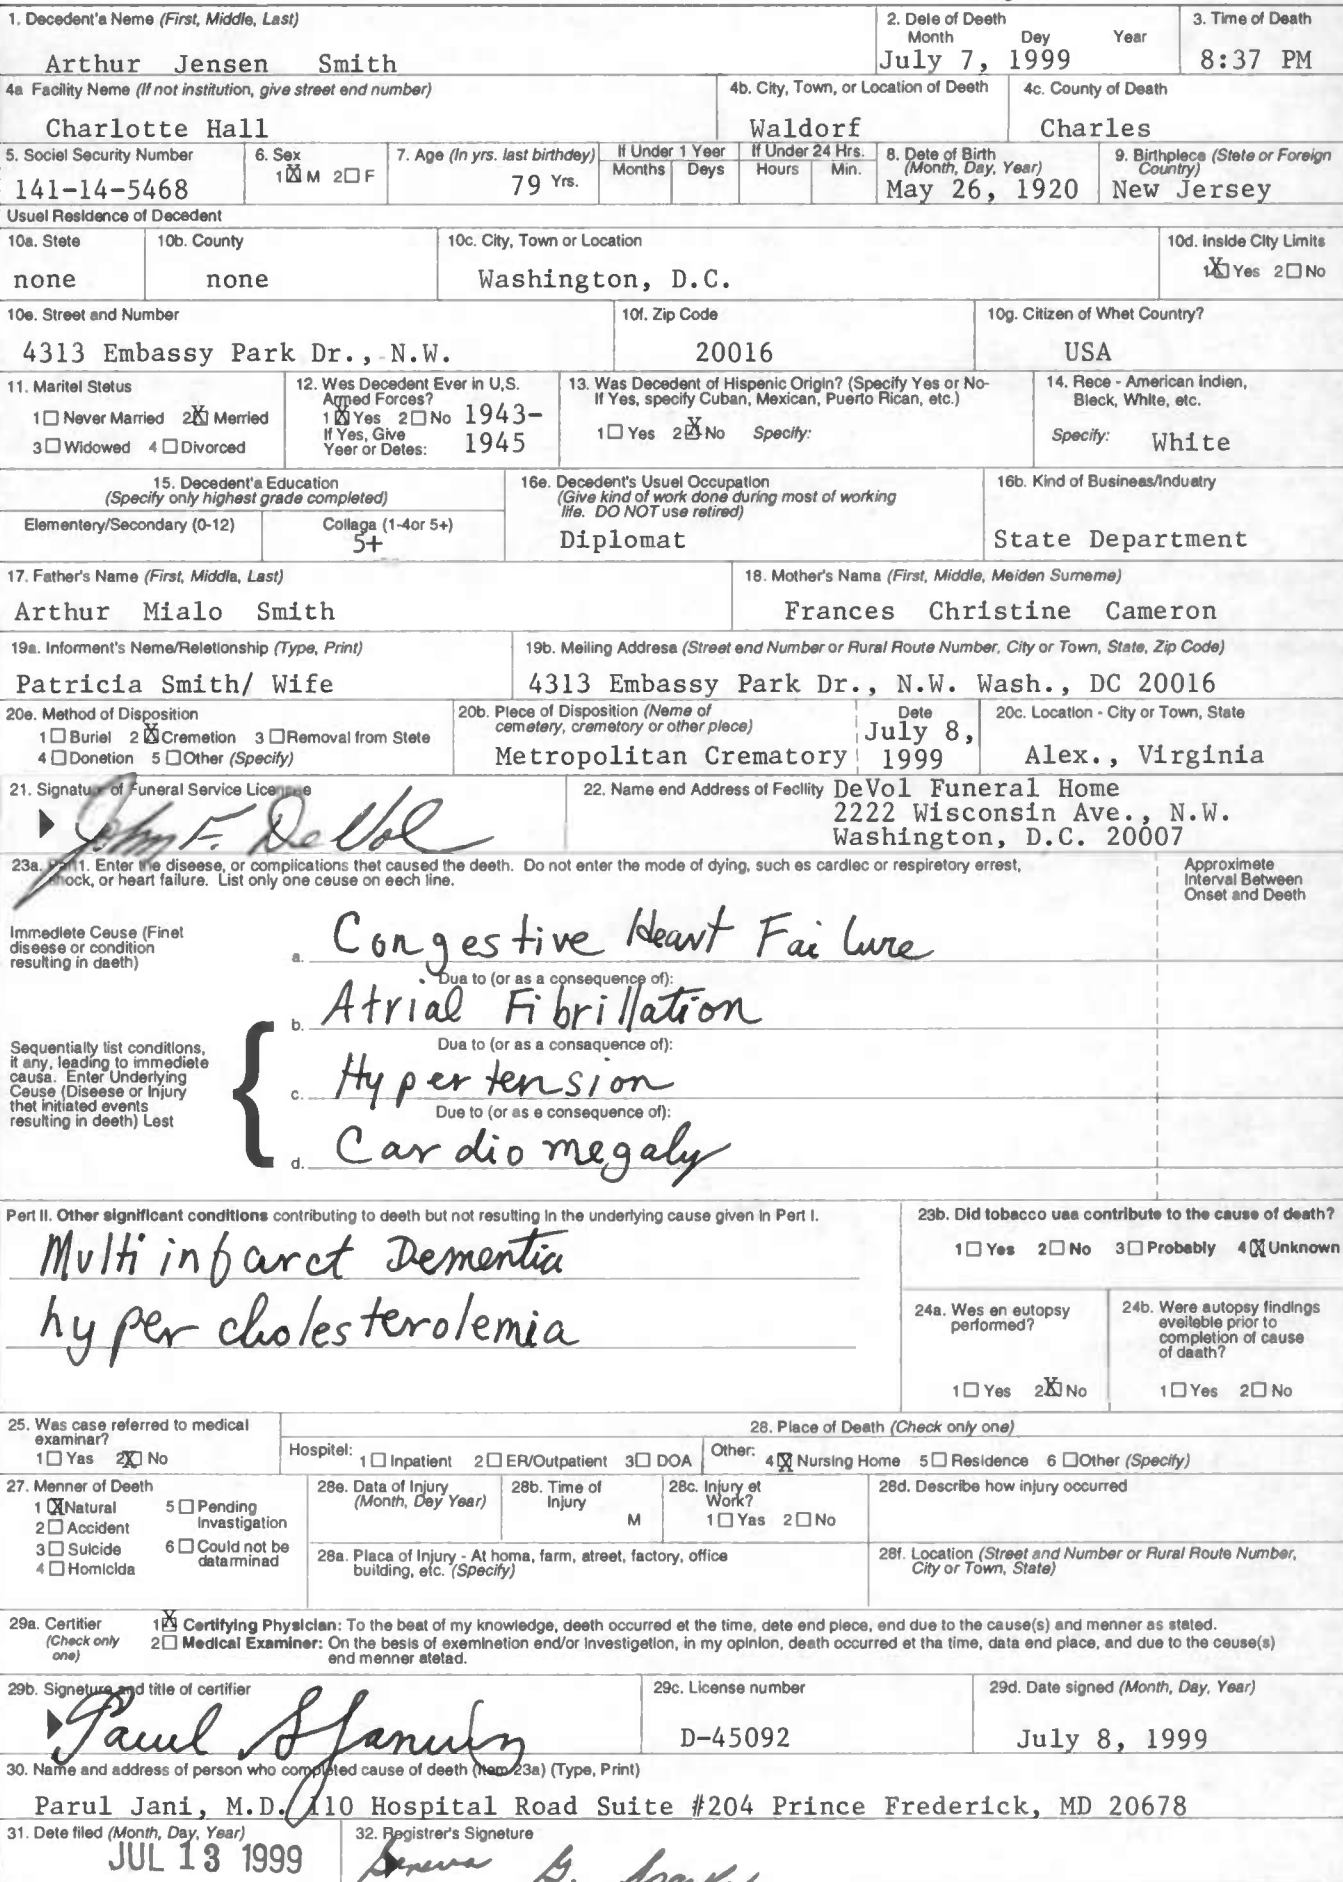 1. Decedent'a Name (First, Middle, Last)
Arthur Jensen Smith
2. Dele of Deeth
Month Dey Year
July 7, 1999
3. Time of Death
8:37 PM
4a Facility Name (If not institution, give street end number)
Charlotte Hall
4b. City, Town, or Location of Deeth
Waldorf
4c. County of Death
Charles
5. Sociel Security Number
141-14-5468
6. Sex
1☒ M 2☐ F
7. Age (In yrs. last birthdey)
79 Yrs.
If Under 1 Yeer
Months Deys
If Under 24 Hrs.
Hours Min.
8. Dete of Birth
(Month, Day, Year)
May 26, 1920
9. Birthplece (Stete or Foreign
Country)
New Jersey
Usuel Residence of Decedent
10a. Stete
none
10b. County
none
10c. City, Town or Location
Washington, D.C.
10d. Inside City Limits
1☒ Yes 2☐ No
10e. Street and Number
4313 Embassy Park Dr., N.W.
10f. Zip Code
20016
10g. Citizen of Whet Country?
USA
11. Maritel Stetus
1☐ Never Married 2☒ Merried
3☐ Widowed 4☐ Divorced
12. Wes Decedent Ever in U,S.
Armed Forces?
1☒ Yes 2☐ No 1943-
If Yes, Give
Yeer or Detes: 1945
13. Was Decedent of Hispenic Origin? (Specify Yes or No-
If Yes, specify Cuban, Mexican, Puerto Rican, etc.)
1☐ Yes 2☒ No Specify:
14. Rece - American Indien,
Bleck, White, etc.
Specify: White
15. Decedent'a Education
(Specify only highest grade completed)
Elementery/Secondary (0-12)
Collaga (1-4or 5+)
5+
16e. Decedent's Usuel Occupation
(Give kind of work done during most of working
life. DO NOT use retired)
Diplomat
16b. Kind of Busineas/Industry
State Department
17. Father's Name (First, Middla, Last)
Arthur Mialo Smith
18. Mother's Nama (First, Middle, Meiden Surneme)
Frances Christine Cameron
19a. Informent's Neme/Reletionship (Type, Print)
Patricia Smith/ Wife
19b. Meiling Addresa (Street end Number or Rural Route Number, City or Town, State, Zip Code)
4313 Embassy Park Dr., N.W. Wash., DC 20016
20e. Method of Disposition
1☐ Buriel 2☒ Cremetion 3☐ Removal from Stete
4☐ Donetion 5☐ Other (Specify)
20b. Plece of Disposition (Neme of
cemetery, cremetory or other plece)
Metropolitan Crematory
Date
July 8,
1999
20c. Location - City or Town, State
Alex., Virginia
21. Signature of Funeral Service Licensee
John F. DeVol
22. Name end Address of Fecllity DeVol Funeral Home
2222 Wisconsin Ave., N.W.
Washington, D.C. 20007
23a. Part 1. Enter the diseese, or complications thet caused the deeth. Do not enter the mode of dying, such es cardiec or respiretory errest,
shock, or heart failure. List only one ceuse on eech line.
Approximete
Interval Between
Onset and Deeth
Immediete Ceuse (Finet
diseese or condition
resulting in daeth)
a. Congestive Heart Failure
Dua to (or as a consequence of):
b. Atrial Fibrillation
Dua to (or as a consaquence of):
Sequentially list conditions,
it any, leading to immediete
causa. Enter Underlying
Ceuse (Diseese or Injury
thet initiated events
resulting in deeth) Lest
c. Hypertension
Due to (or as e consequence of):
d. Cardiomegaly
Pert II. Other significant conditions contributing to deeth but not resulting in the underlying cause given in Pert I.
Multi infarct Dementia
hypercholesterolemia
23b. Did tobacco uaa contribute to the cause of death?
1☐ Yes 2☐ No 3☐ Probably 4☒ Unknown
24a. Wes en eutopsy
performed?
1☐ Yes 2☒ No
24b. Were autopsy findings
eveileble prior to
completion of cause
of daath?
1☐ Yes 2☐ No
25. Was case referred to medical
examinar?
1☐ Yas 2☒ No
28. Place of Death (Check only one)
Hospitel: 1☐ Inpatient 2☐ ER/Outpatient 3☐ DOA
Other: 4☒ Nursing Home 5☐ Residence 6☐ Other (Specify)
27. Menner of Deeth
1☒ Natural 5☐ Pending
Invastigation
2☐ Accident
3☐ Sulcide 6☐ Could not be
datarminad
4☐ Homicida
28e. Data of Injury
(Month, Dey Year)
28b. Time of
Injury
M
28c. Injury et
Work?
1☐ Yas 2☐ No
28d. Describe how injury occurred
28a. Placa of Injury - At homa, farm, atreet, factory, office
building, etc. (Specify)
28f. Location (Street and Number or Rural Route Number,
City or Town, State)
29a. Certitier
(Check only
one)
1☒ Certifying Physician: To the beat of my knowledge, deeth occurred et the time, dete end plece, end due to the cause(s) and menner as stated.
2☐ Medical Examiner: On the besis of exeminetion end/or Investigetion, in my opinion, death occurred et tha time, data end place, and due to the ceuse(s)
end menner atetad.
29b. Signeture and title of certifier
29c. License number
D-45092
29d. Date signed (Month, Day, Year)
July 8, 1999
30. Name and address of person who completed cause of death (Item 23a) (Type, Print)
Parul Jani, M.D. 110 Hospital Road Suite #204 Prince Frederick, MD 20678
31. Dete filed (Month, Day, Year)
JUL 13 1999
32. Registrer's Signeture